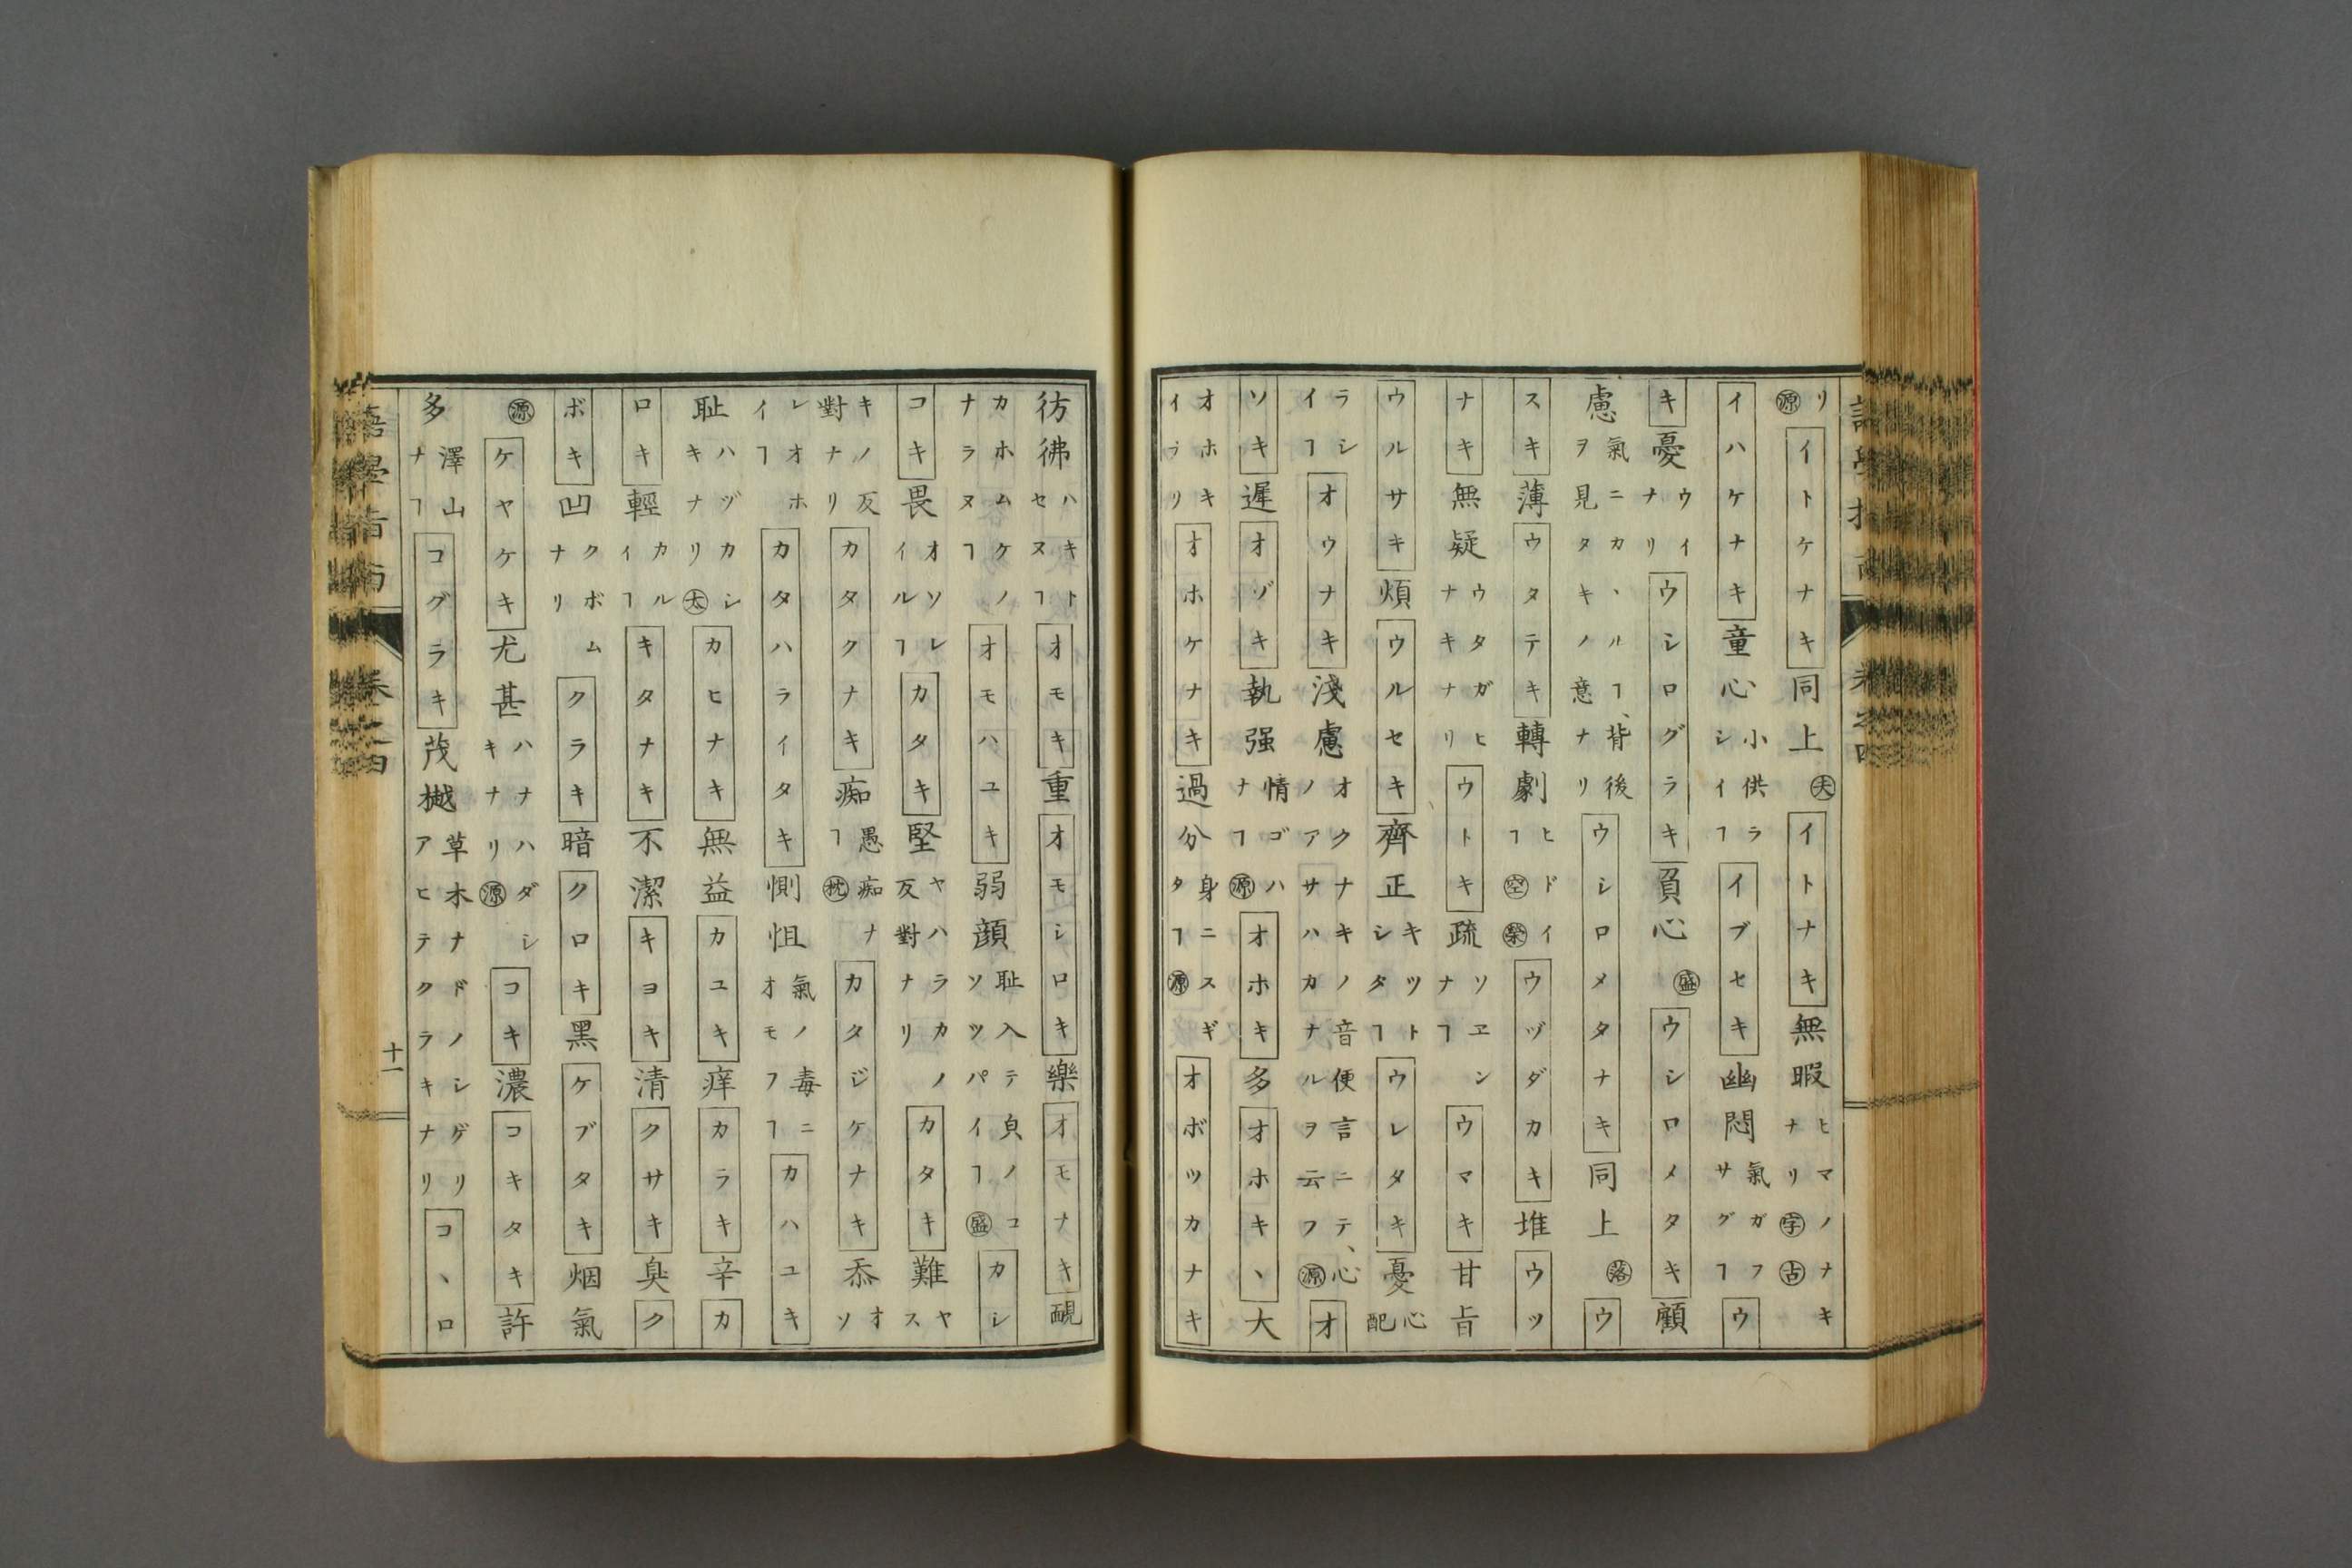 リ源 イトケナキ 同上 大 イトナキ 無暇 ヒマノナキナリ字古
イハケナキ 童心 小供ラシイヿ イブセキ 幽悶 氣ガフサグヿ ウ
キ 憂 ウイナリ ウシログラキ 負心 盛 ウシロメタキ 顧
慮 氣ニカヽルヿ、背後ヲ見タキノ意ナリ ウシロメタナキ 同上 落 ウ
スキ 薄 ウタテキ 轉劇 ヒドイヿ空榮 ウヅダカキ 堆 ウツ
ナキ 無疑 ウタガヒナキナリ ウトキ 疏 ソヱンナヿ ウマキ 甘旨
ウルサキ 煩 ウルセキ 齊正 キツトシタヿ ウレタキ 憂 心配
ラシイヿ オウナキ 淺慮 オクナキノ音便言ニテ、心ノアサハカナルヲ云フ源 オ
ソキ 遲 オゾキ 執强 情ゴハナヿ源 オホキ 多 オホキヽ 大
オホキイナリ オホケナキ 過分 身ニスギタヿ源 オボツカナキ
彷彿 ハキトセヌヿ オモキ 重 オモシロキ 樂 オモナキ 靦
カホムケノナラヌヿ オモハユキ 弱顔 耻入テ㒵ノコソツパイヿ盛 カシ
コキ 畏 オソレイルヿ カタキ 堅 ヤハラカノ反對ナリ カタキ 難 ヤス
キノ反對ナリ カタクナキ 痴 愚痴ナヿ枕 カタジケナキ 忝 オソ
レオホイヿ カタハライタキ 惻怛 氣ノ毒ニオモフヿ カハユキ
耻 ハヅカシキナリ大 カヒナキ 無益 カユキ 痒 カラキ 辛 カ
ロキ 輕 カルイヿ キタナキ 不潔 キヨキ 清 クサキ 臭 ク
ボキ 凹 クボムナリ クラキ 暗 クロキ 黑 ケブタキ 烟氣
源 ケヤケキ 尤甚 ハナハダシキナリ源 コキ 濃 コキタキ 許
多 澤山ナヿ コグラキ 茂樾 草木ナドノシゲリアヒテクラキナリ コヽロ
語學指南 卷之四 十一